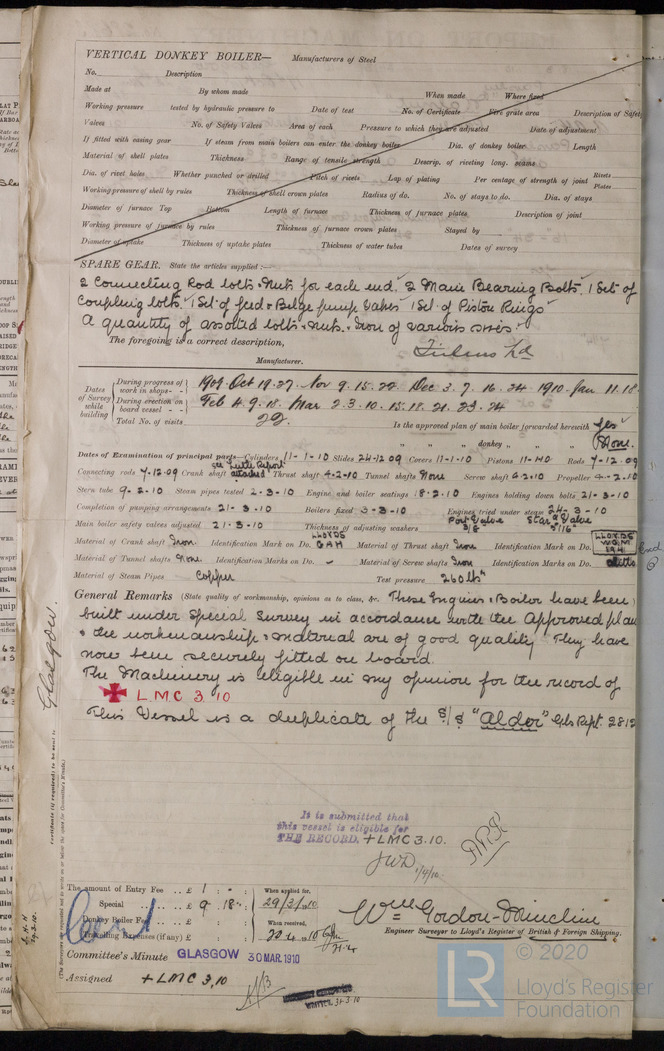 VERTICAL DONKEY BOILER— Manufacturers of Steel
No. Description
Made at By whom made When made Where fixed
Working pressure tested by hydraulic pressure to Date of test No. of Certificate Fire grate area Description of Safety
Valves No. of Safety Valves Area of each Pressure to which they are adjusted Date of adjustment
If fitted with easing gear If steam from main boilers can enter the donkey boiler Dia. of donkey boiler Length
Material of shell plates Thickness Range of tensile strength Descrip. of riveting long. seams
Dia. of rivet holes Whether punched or drilled Pitch of rivets Lap of plating Per centage of strength of joint Rivets Plates
Working pressure of shell by rules Thickness of shell crown plates Radius of do. No. of stays to do. Dia. of stays
Diameter of furnace Top Bottom Length of furnace Thickness of furnace plates Description of joint
Working pressure of furnace by rules Thickness of furnace crown plates Stayed by
Diameter of uptake Thickness of uptake plates Thickness of water tubes Dates of survey
SPARE GEAR. State the articles supplied:—
2 Connecting Rod bolts & Nuts for each end. 2 Main Bearing Bolts. 1 Set of
Coupling bolts. 1 Set of feed & Bilge pump Valves 1 Set of Piston Rings
A quantity of assorted bolts & nuts. Iron of various sizes.
The foregoing is a correct description,
Manufacturer.
Dates of Survey while building
During progress of work in shops - - 1909. Oct 19. 27. Nov 9. 15. 22. Dec 3. 7. 16. 24 1910. Jan 11. 18
During erection on board vessel - - - Feb 4. 9. 18. Mar 2. 3. 10. 15. 18. 21. 23. 24
Total No. of visits 22. Is the approved plan of main boiler forwarded herewith Yes
" " " donkey " " " None.
Dates of Examination of principal parts—Cylinders 11-1-10 Slides 24-12-09 Covers 11-1-10 Pistons 11-1-10 Rods 7-12-09
Connecting rods 7-12-09 Crank shaft see Report attached Thrust shaft 4-2-10 Tunnel shafts None Screw shaft 6-2-10 Propeller 4-2-10
Stern tube 9-2-10 Steam pipes tested 2-3-10 Engine and boiler seatings 18-2-10 Engines holding down bolts 21-3-10
Completion of pumping arrangements 21-3-10 Boilers fixed 3-3-10 Engines tried under steam 24-3-10
Main boiler safety valves adjusted 21.3.10 Thickness of adjusting washers Port Valve 3/8" Star d Valve 5/16"
Material of Crank shaft Iron Identification Mark on Do. LLOYDS GAH Material of Thrust shaft Iron Identification Mark on Do. LLOYDS
Material of Tunnel shafts None Identification Marks on Do. - Material of Screw shafts Iron Identification Marks on Do. ditto
Material of Steam Pipes Copper Test pressure 260 lbs
General Remarks (State quality of workmanship, opinions as to class, &c. These Engines & Boiler have been
built under Special Survey in accordance with the Approved plan
& the workmanship & material are of good quality They have
now been securely fitted on board.
The Machinery is eligible in my opinion for the record of
L.M.C 3.10
This Vessel is a duplicate of the S/S "Alder" Gls Rept. 2812
Glasgow.
It is submitted that
this vessel is eligible for
THE RECORD. + LMC 3.10.
JWD 1/4/10.
The amount of Entry Fee .. £ 1 : - : When applied for,
Special .. £ 9 : 18 : 29/3/10
Donkey Boiler Fee .. £ : : When received,
Travelling Expenses (if any) £ : : 20.4.10
Wm Gordon-Maclean
Engineer Surveyor to Lloyd's Register of British & Foreign Shipping.
Committee's Minute GLASGOW 30 MAR. 1910
Assigned + LMC 3,10
© 2020
LR
Lloyd's Register
Foundation